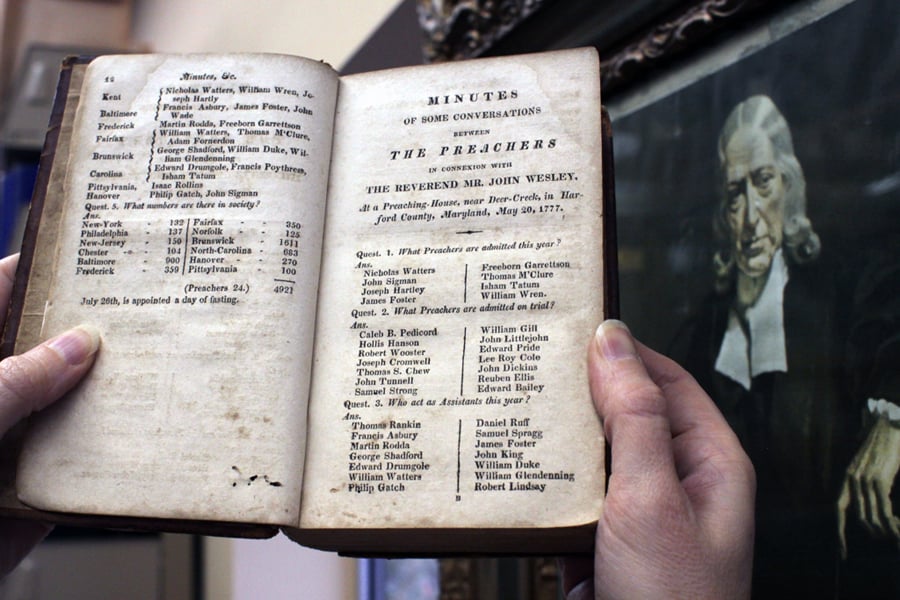 12
Minutes, &c.
Kent { Nicholas Watters, William Wren, Jo-
seph Hartly
Baltimore { Francis Asbury, James Foster, John
Wade
Frederick Martin Rodda, Freeborn Garrettson
Fairfax { William Watters, Thomas M'Clure,
Adam Fornerdon
Brunswick { George Shadford, William Duke, Wil-
liam Glendenning
Carolina { Edward Drumgole, Francis Poythress,
Isham Tatum
Pittsylvania, Isaac Rollins
Hanover Philip Gatch, John Sigman
Quest. 5. What numbers are there in society?
Ans.
New-York - 132 | Fairfax - 350
Philadelphia - 137 | Norfolk - 125
New-Jersey - 150 | Brunswick - 1611
Chester - 104 | North-Carolina - 683
Baltimore - 900 | Hanover - 270
Frederick - 359 | Pittsylvania - 100
(Preachers 24.) 4921
July 26th, is appointed a day of fasting.
MINUTES
OF SOME CONVERSATIONS
BETWEEN
THE PREACHERS
IN CONNEXION WITH
THE REVEREND MR. JOHN WESLEY,
At a Preaching-House, near Deer-Creek, in Har-
ford County, Maryland, May 20, 1777.
Quest. 1. What Preachers are admitted this year?
Ans.
Nicholas Watters | Freeborn Garrettson
John Sigman | Thomas M'Clure
Joseph Hartley | Isham Tatum
James Foster | William Wren.
Quest. 2. What Preachers are admitted on trial?
Ans.
Caleb B. Pedicord | William Gill
Hollis Hanson | John Littlejohn
Robert Wooster | Edward Pride
Joseph Cromwell | Lee Roy Cole
Thomas S. Chew | John Dickins
John Tunnell | Reuben Ellis
Samuel Strong | Edward Bailey
Quest. 3. Who act as Assistants this year?
Ans.
Thomas Rankin | Daniel Ruff
Francis Asbury | Samuel Spragg
Martin Rodda | James Foster
George Shadford | John King
Edward Drumgole | William Duke
William Watters | William Glendenning
Philip Gatch | Robert Lindsay
B